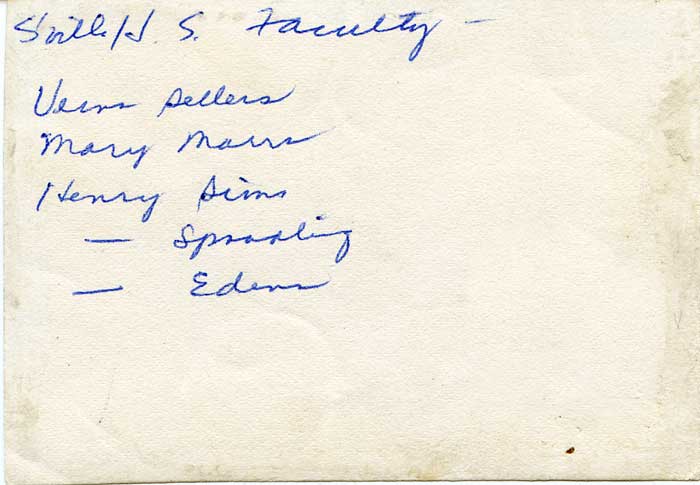 S'ville H. S. Faculty -
Verna Sellers
Mary Marrs
Henry Sims
— Spradling
— Edens